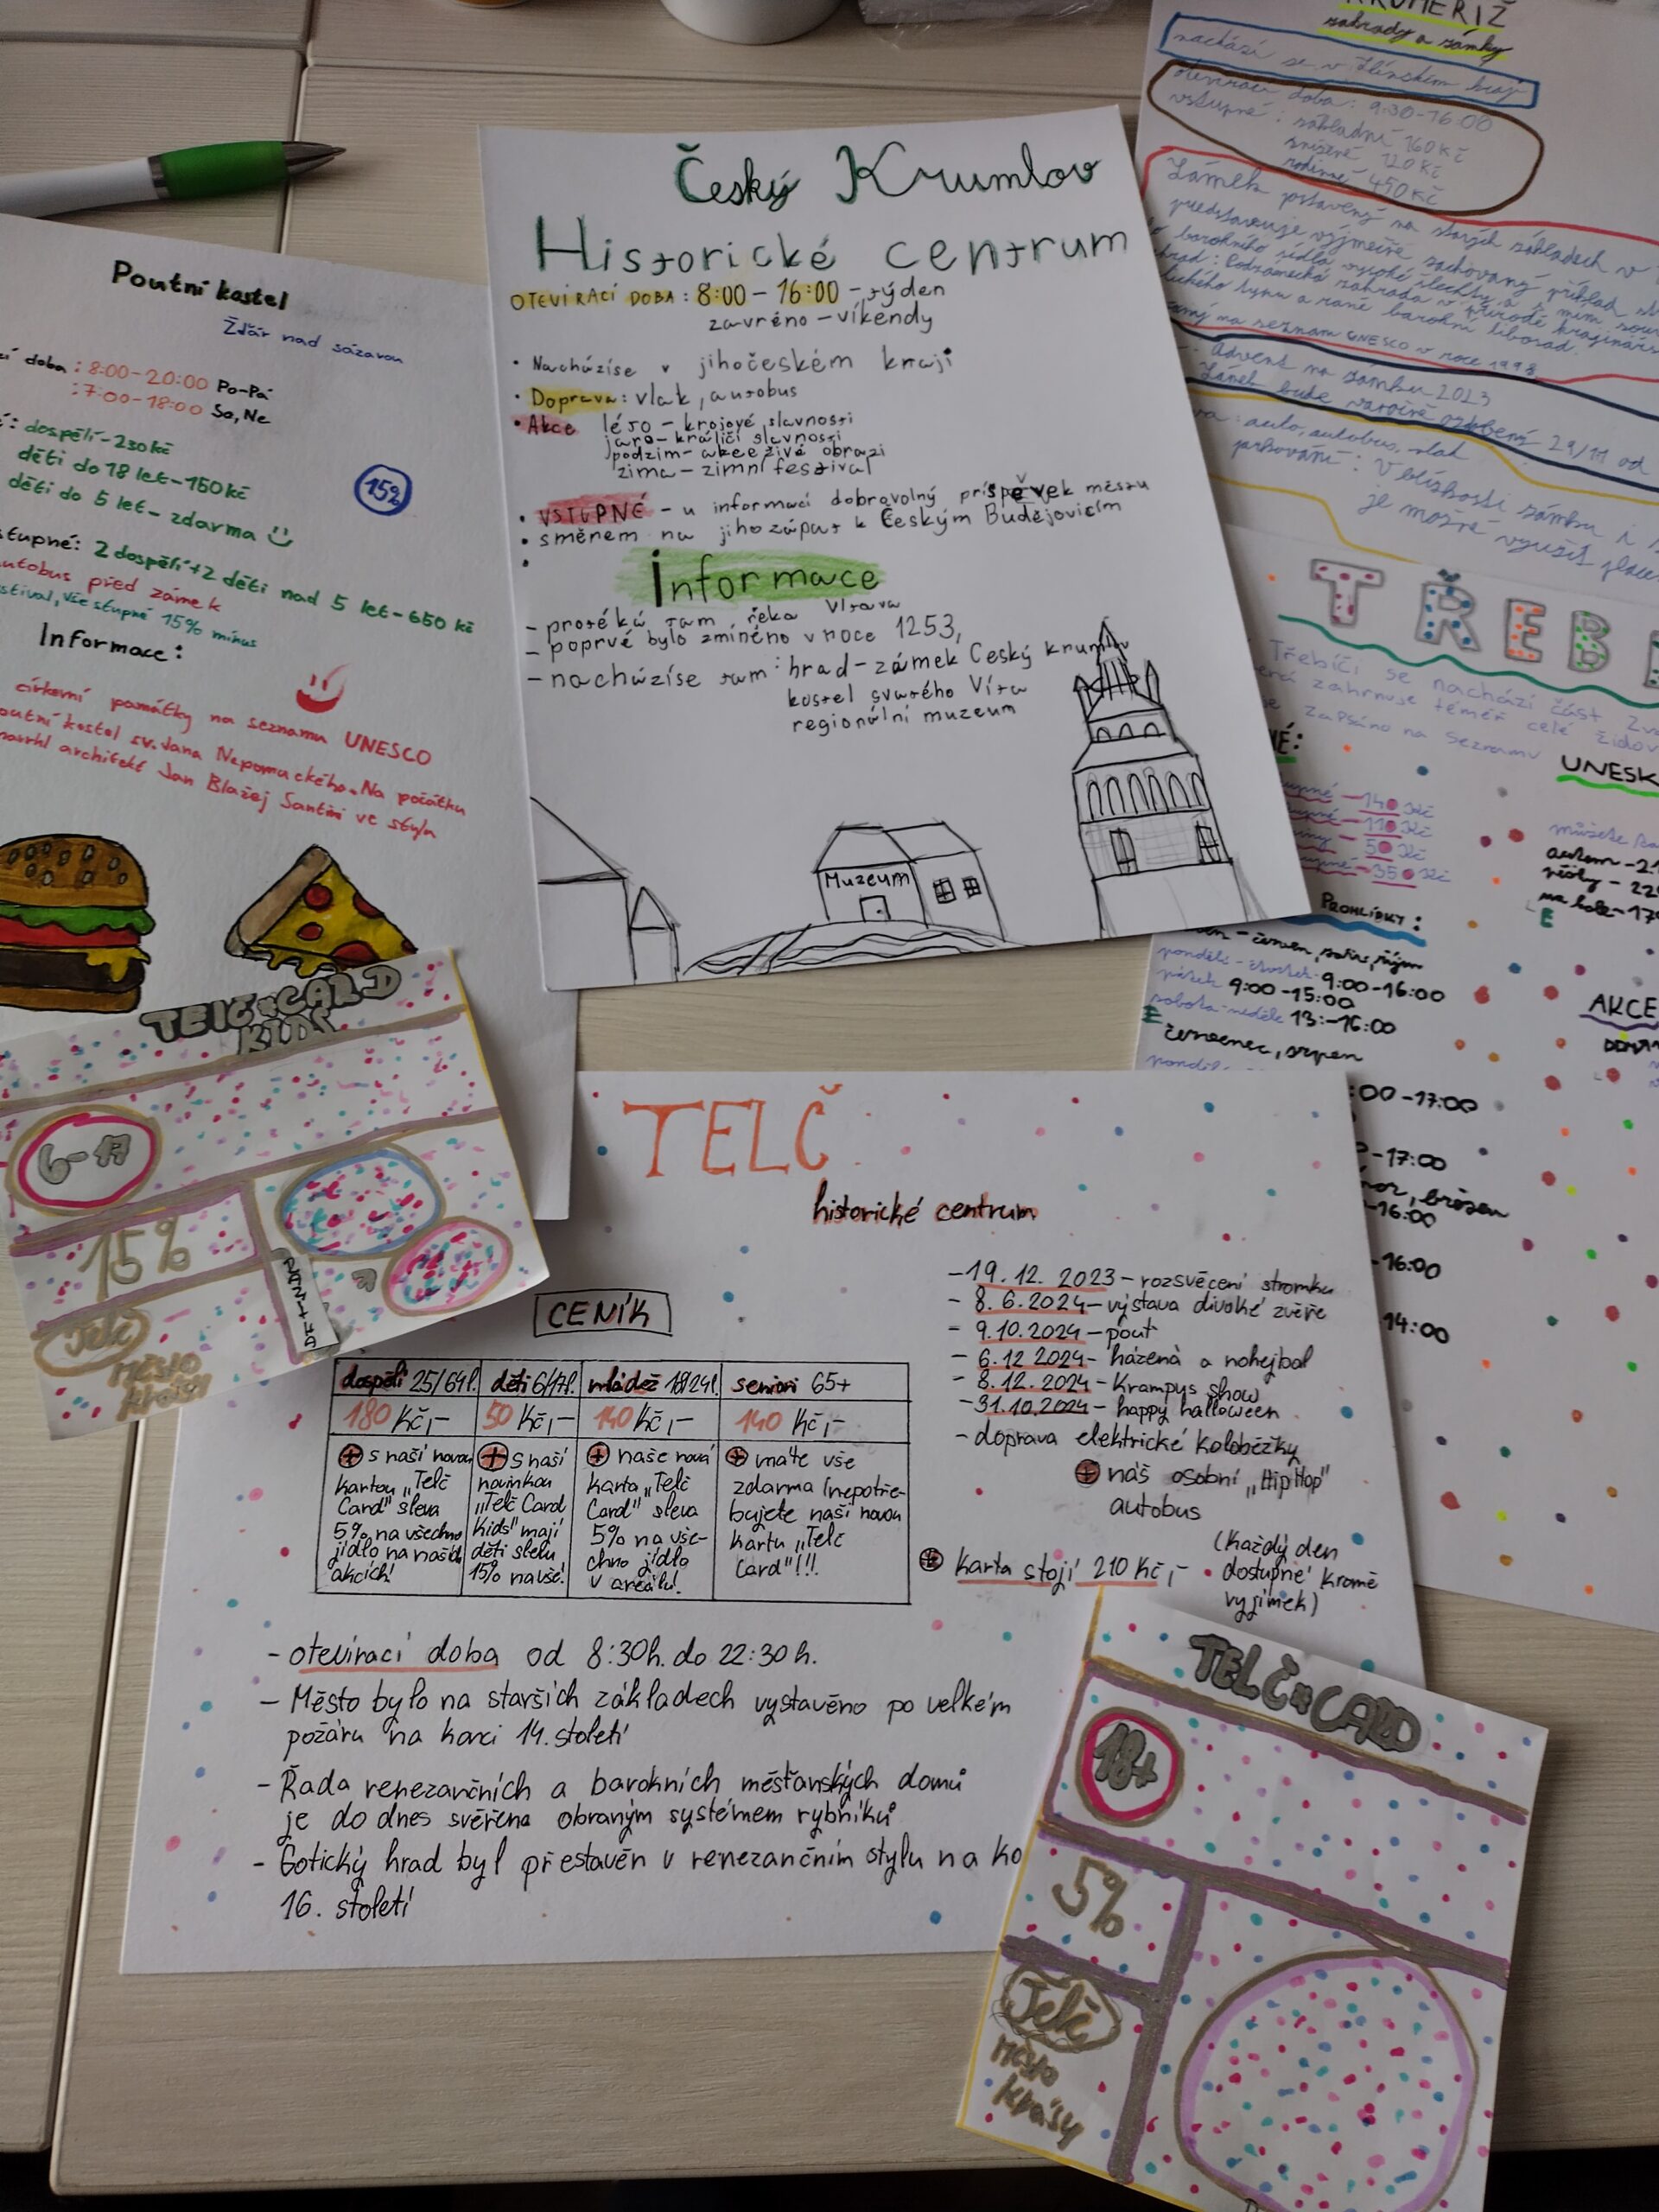 Poutní kostel
Žďár nad sázavou
doba: 8:00-20:00 Po-Pá
:7:00-18:00 So,Ne
dospělí-230kč
děti do 18 let-150kč
děti do 5 let- zdarma
15%
stupné: 2 dospělí+2 děti nad 5 let-650 kč
autobus před zámek
stival, vše stupné 15% mínus
Informace:
církevní památky na seznamu UNESCO
outní kostel sv. Jana Nepomuckého. Na počátku
navrhl architekt Jan Blažej Santini ve stylu
Český Krumlov
Historické centrum
OTEVÍRACÍ DOBA: 8:00-16:00 - týden
zavréno - víkendy
• Nacházíse v jihočeském kraji
• Doprava: vlak, autobus
• Akce léto - krojové slavnosti
jaro - králičí slavnosti
podzim - akce živé obrazi
zima - zimní festival
• VSTUPNÉ - u informací dobrovolný príspěvek městu
• směrem na jihozápat k Českým Budějovicím
•
Informace
- protéká tam řeka Vltava
- poprvé bylo zmíněno v roce 1253,
- nacházíse tam: hrad-zámek Český krumlov
kostel svatého Víta
regionální muzeum
Muzeum
KROMĚŘÍŽ
zahrady a zámky
nachází se v Zlínském kraji
otevírací doba: 9:30-16:00
vstupné: základní 160 Kč
snížené 120 Kč
rodinné 450 Kč
Zámek postavený na starých základech v
představuje výjimečně zachovaný příklad
barokního sídla vysoké šlechty a s ním
Podzámecká zahrada v přírodě krajinářs
ckého typu a raně barokní libosad.
na seznam UNESCO v roce 1998
Advent na zámku 2023
Zámek bude vánočně ozdobený 29/11 od
auto, autobus, vlak
parkování: V blízkosti zámku
je možné využít
TŘEB
Třebíči se nachází část
zahrnuje téměř celé židov
zapsáno na seznamu
UNESK
140 Kč
110 Kč
50 Kč
350 Kč
můžete
autem -2
pěšky - 22
na kole -17
PROHLÍDKY:
- červen, září, říjen
pondělí - čtvrtek 9:00-16:00
pátek 9:00-15:00
sobota - neděle 13:-16:00
červenec, srpen
AKCE
:00-17:00
-17:00
březen
-16:00
-16:00
14:00
TELČ CARD
KIDS
6-17
15%
Telč
Město
krásy
TELČ
historické centrum
CENÍK
dospělí 25/64l. děti 6/17l. mládež 18/24l. seniori 65+
180 Kč,- 50 Kč,- 140 Kč,- 140 Kč,-
+ s naší novou
kartou „Telč
Card" sleva
5% na všechno
jídlo na našich
akcích!
+ s naší
novinkou
„Telč Card
Kids" mají
děti slevu
15% na vše!
+ naše nová
karta „Telč
Card" sleva
5% na vše-
chno jídlo
v areálu!
+ máte vše
zdarma (nepotře-
bujete naší novou
kartu „Telč
Card"!!!
-19. 12. 2023- rozsvěcení stromku
- 8. 6. 2024- výstava divoké zvěře
- 9.10.2024 - pouť
- 6.12 2024- házená a nohejbal
- 8.12.2024 - Krampys show
-31.10.2024 - happy halloween
- doprava elektrické koloběžky
+ náš osobní „Hip Hop"
autobus
(Každý den
dostupné kromě
vyjímek)
+ karta stojí 210 Kč,-
- otevírací doba od 8:30h. do 22:30 h.
- Město bylo na starších základech vystavěno po velkém
požáru na konci 14. století
- Řada renezančních a barokních měšťanských domů
je do dnes svěřena obraným systémem rybníků
- Gotický hrad byl přestavěn v renezančním stylu na ko
16. století
TELČ CARD
18+
5%
Telč
Město
krásy